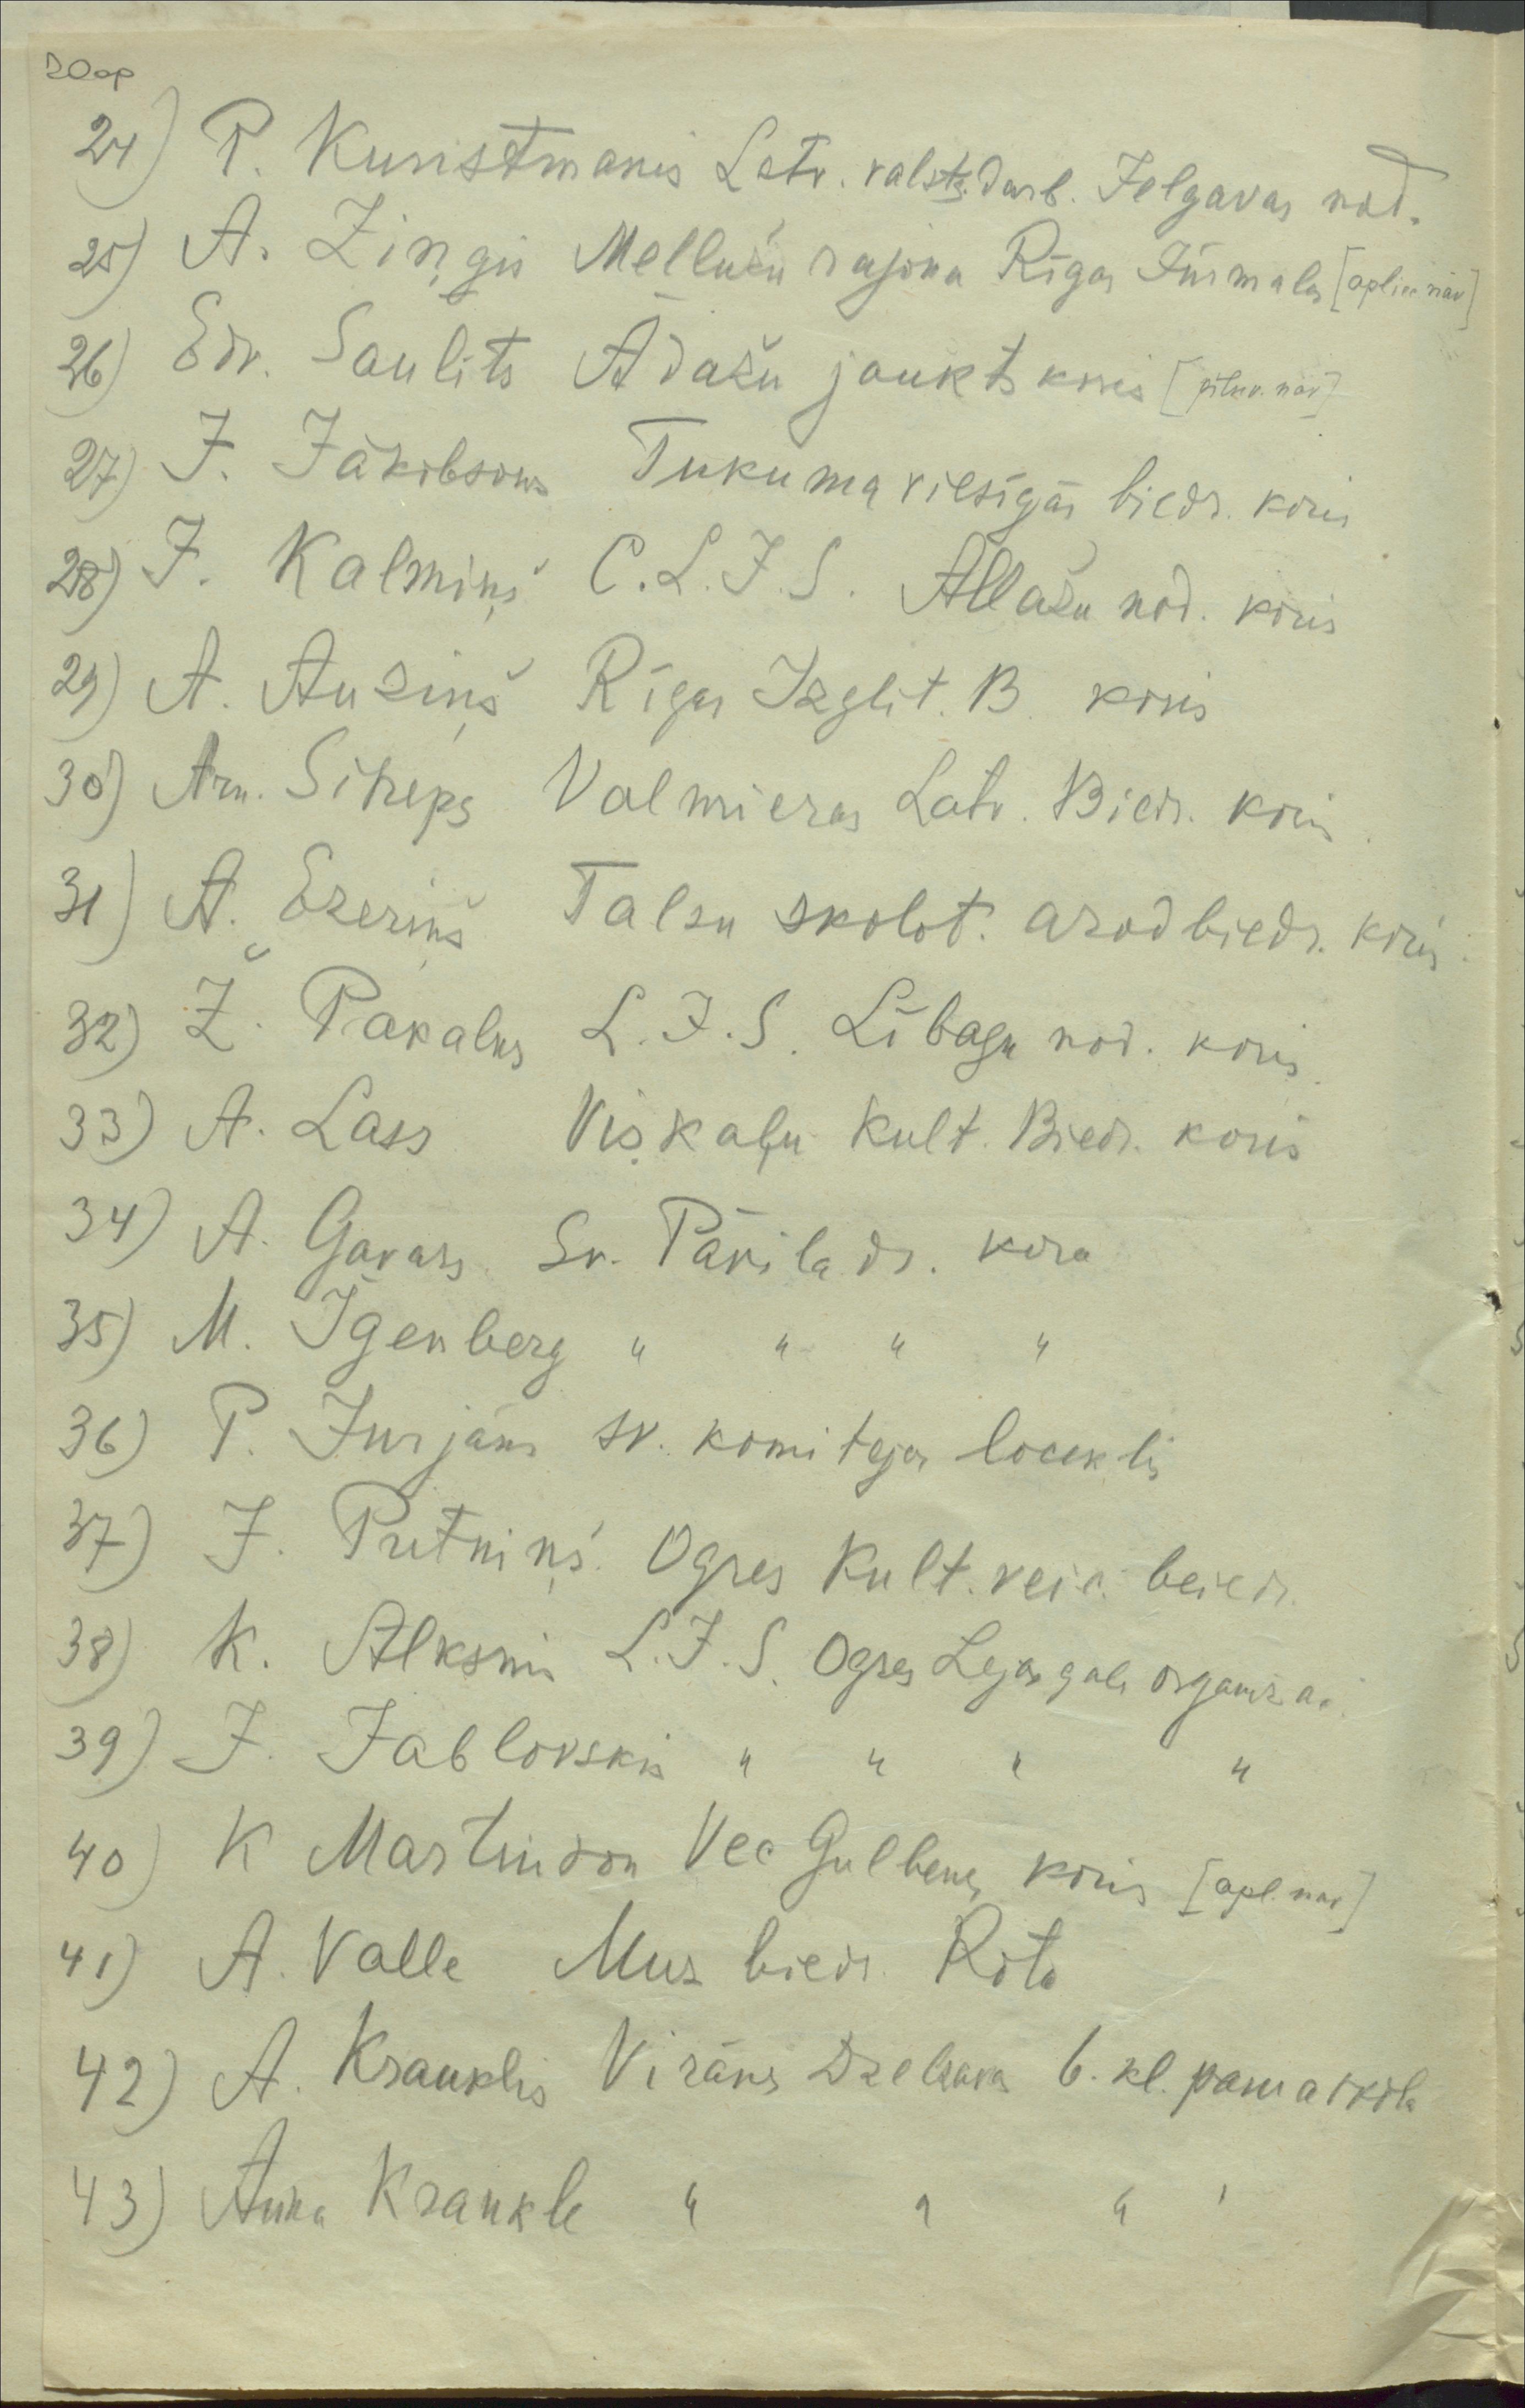 20op
24) P. Kunstmanis Latv. valsts. darb. Jelgavas nod.
25) A. Ziņģis Mellužu rajona Rīgas Jūrmalas [apliec. nav]
26) Edv. Saulīts Ādažu jaukts koris [pilnv. nav]
27) J. Jākobsons Tukuma viesīgās biedr. koris
28) J. Kalmiņš C.L.J.S. Allažu nod. koris
29) A. Auziņš Rīgas Izglīt. B. koris
30) Arn. Siheps Valmieras Latv. Biedr. koris.
31) A. Ezeriņš Talsu skolot. arodbiedr. koris.
32) Ž. Pakalns L.J.S. Lībagu nod. koris.
33) A. Lass Viskaļu Kult. Biedr. koris
34) A. Gavars Sv. Pāvila dr. kora
35) M. Īgenberg " " " "
36) P. Jurjāns sv. komitejas loceklis
37) J. Putniņš. Ogres Kult. veic. beiedr.
38) K. Alksnis L.J.S. Ogres Lejasgala organizac.
39) J. Jablovskis " " " "
40) K Martinson Vec Gulbenes koris [apl. nav]
41) A. Valle Muz biedr. Rota
42) A. Krauklis Virānes Dzelzavas 6. kl. pamatskola
43) Anna Kraukle " " " "